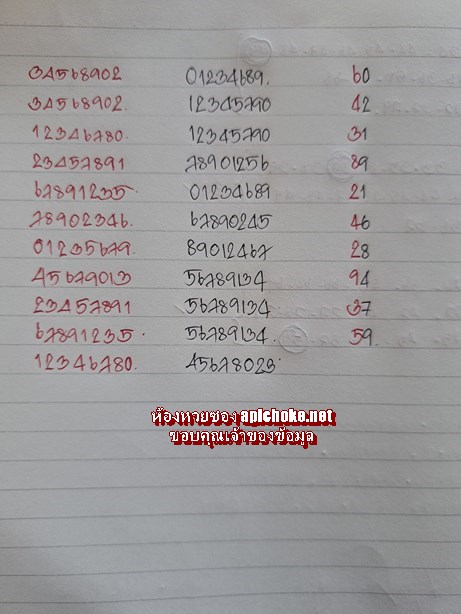 34568902 01234689. 60
34568902. 12345790 42
12346780. 12345790 31
23457891 78901256 89
67891235. 01234689 21
78902346. 67890245 46
01235679. 89012467 28
45679013 56789134 94
23457891 56789134 37
67891235. 56789134. 59.
12346780. 45678023.
ห้องหวยซอง apichoke.net
ขอบคุณเจ้าของข้อมูล